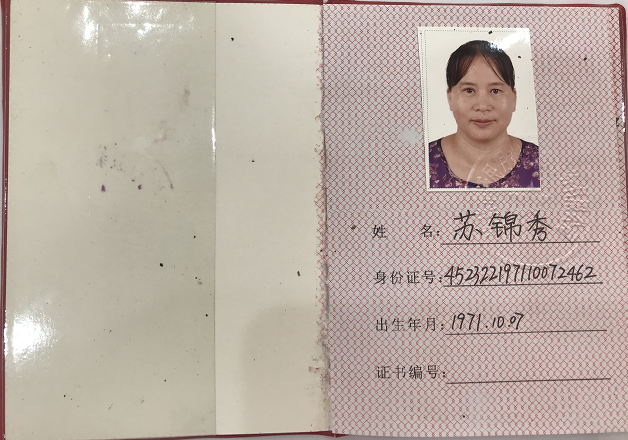 姓 名：苏锦秀
身份证号：452322197110072462
出生年月：1971.10.07
证书编号：